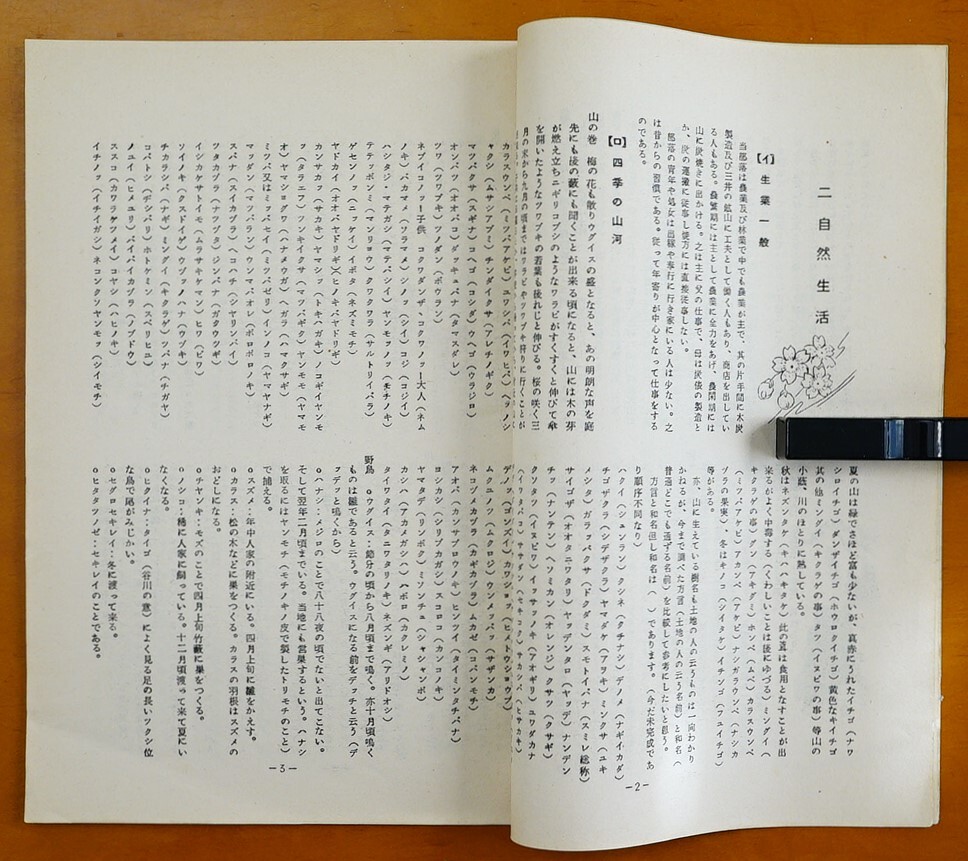 二 自然生活
【イ】生業一般
当部落は農業及び林業で中でも農業が主で、其の片手間に木炭
製造及び三井の鉱山に工夫として働く人もあり、商店を出してい
る人もある。農繁期には主として農業に全力をあげ、農閑期には
山に炭焼きに出かける。之は主に父の仕事で、母は炭俵の製造と
か、炭の運搬に従事し後方には直接従事しない。
部落の青年や処女は出稼や奉行に行き家にいる人は少ない。之
は昔からの習慣である。従って年寄りが中心となって仕事をする
のである。
【ロ】四季の山河
山の巻 梅の花も散りウグイスの盛となると、あの明朗な声を庭
先にも後の藪にも聞くことが出来る頃になると、山には木の芽
が燃え立ちニギリコブシのようなワラビがすくすくと伸びて傘
を開いたようなツワブキの若葉も後れじと伸びる。桜の咲く三
月の末から九月の頃まではワラビやツワブキ狩りに行くことが
夏の山は緑でさほど富も少ないが、真赤にうれたイチゴ(ナワ
シロイチゴ)ダンザイチゴ(ホウロクイチゴ)黄色なキイチゴ
其の他ミングイ(キクラゲの事)タツ(イヌビワの事)等山の
小蔭、川のほとりに熟している。
秋はネズンタケ(キハハキタケ)此の茸は食用となすことが出
来るがよく中毒する(くわしいことは後にゆづる)ミングイ(
キクラゲの事)グン(アキグミ)ホンベ(ムベ)カラスウンベ
(ミツバアケビ)アカンベ(アケビ)ナシガラウンベ(ナシカ
ヅラの果実)・冬はキノコ(シイタケ)イチンゴ(フユイチゴ)
等がある。
亦、山に生えている樹名も土地の人の云うものは一向わかり
かねるが、今まで調べた方言(土地の人の云う名前)と和名(
普通どこでも通ずる名前)を比較して参考にしたいと思う。
方言と和名但し和名は( )であります。(今だ未完成であ
り順序不同なり)
ハクイ(シュンラン)クシネ(クチナシ)デノメ(ナギイカダ)
チゴザクラ(シデザクラ)ヤマダケ(アクシバ)ミンクサ(ユキ
メシタ)ガラッパクサ(ドクダミ)スモトイバナ(スミレ総称)
サイゴザ(オオタニワタリ)ヤッデンタロ(ヤッデ)ナンデン
チッ(ナンテン)ヘソミカン(オレンヂ)クサッ(クサギ)
クソタツ(イヌビワ)イッサッノキ(アオギリ)ユワダカナ
(イワタバコ)ランヤンバナ(セキコク)サカシバ(ヒサカキ)
－2－
カラスウンベ(ミツバアケビ)ユワシバ(イワヒバ)ヘラノシ
ャクシ(ムシアブミ)チンダイクサ(アレチノギク)
マツバクサ(スギナ)ヘゴ(コシダ)ウラヘゴ(ウラジロ)
オンバコ(オオバコ)ダッキョバナ(タマスダレ)
ツワ(ツワブキ)ツノダン(ボウラン)
ネブイコッ－子供 コクワダンザ、コクワノッ－大人(ネム
ノキ)バカマメ(ソラマメ)シノッ(シイ)コジ(コジイ)
ハシタカ・マテガシ(マテバシイ)ヤンモッノッ(モチノキ)
テテッポンミ(マンリョウ)クワクワラ(サルトリイバラ)
ゲセンノッ(ニッケイ)イボタ(ネズミモチ)
ヤドカイ(オオバヤドリギ)(ヒノキバヤドリギ)
カサカッ(サカキ)ヤマシバ(トキガガキ)ノコギイヤンモ
ッ(タラニエフ)ツンキイクサ(マツバギク)ヤンモモ(ヤマモ
オ)ヤマショウガワ(ハナメウガ)ヘガラ(ハマクサギ)
マッダン(マツバラン)ウンマバオレ(ボロボロノキ)
ミツバ又はミツバセイ(ミツバゼリ)インノコ(ヤマヤナギ)
スバナ(スイカヅラ)コハチ(シヤリンバイ)
ツタカブラ(ナツヅタ)ジンバナ(ガクウツギ)
イシカケサトイモ(ムラサキケマン)ヒワ(ビワ)
ソイノキ(クスドイゲ)ウヅッノハナ(ウヅキ)
チカラシバ(ナギ)ミングイ(キクラゲ)ツバナ(チガヤ)
コバトシ(デシバリ)ホトケミン(スベリヒユ)
ノユイ(ヒメユリ)バイバイカヅラ(ノブドウ)
ススコ(カワラケツメイ)コヤシ(ハヒノキ)
イチノッ(イチイガシ)ネコンクソヤンモッ(シイモチ)
デノッ(ゴンズイ)カワショッ(ヒメトウショウブ)
ムクエノッ(ムクロジ)ウンメンバッ(サザンカ)
ネコヅメカヅラ(カギカヅラ)ムカゼ(コバンモチ)
アオバ(カンサブロウノキ)ヒンツイ(タイミンタチバナ)
ヨシカシ(シリブカガシ)スコロコ(カンコノキ)
ヤマタデ(リンボク)ミソンチュ(シャシャンボ)
カシハ(アカメガシハ)ハナボロ(カクレミノ)
タイワタイ(タニワタリノキ)ネズンギ(アリドオシ)
野鳥 oウグイス：節分の頃から八月頃まで鳴く。亦十月頃鳴く
ものは雛であると云う。ウグイスになる前をデッチと云う(デ
ッデッと鳴くから)
oハナシ：メジロのことで八十八夜の頃でないと出てこない。
そして翌年二月頃までいる。当地にも営巣するという。ハナシ
を取るにはヤンモチ(モチノキノ皮で製したトリモチのこと)
で捕える。
oスズメ：年中人家の附近にいる。四月上旬に雛をかえす。
oカラス：松の木などに巣をつくる。カラスの羽根はスズメの
おどしになる。
oチヤンキ：モズのことで四月上旬竹藪に巣をつくる。
oノシコ：稀に人家に飼っている。十二月頃渡って来て夏にい
なくなる。
oヒクイナ：タイゴ(谷川の意)によく見る足の長いツクシ位
な鳥で尾がみじかい。
oセグロセキレイ：冬に渡って来る。
oヒタタツノゼ：セキレイのことである。
－3－